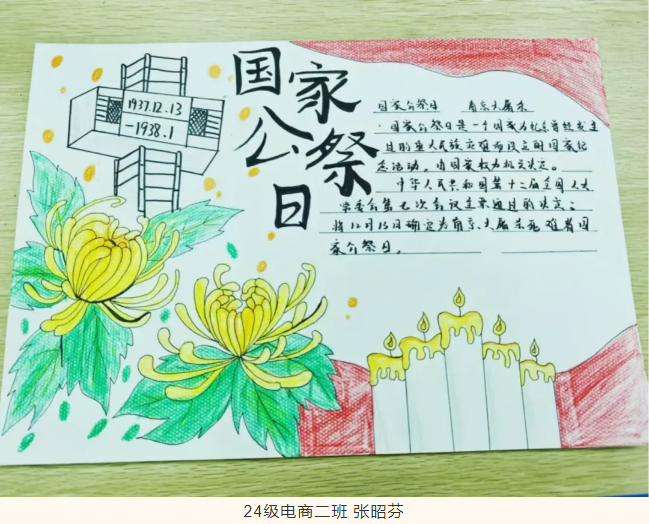 国家公祭日
1937.12.13
-1938.1
国家公祭日 南京大屠杀
国家公祭日是一个国家为纪念曾经发生
过的重大民族灾难而设立的国家纪
念活动。由国家权力机关决定。
中华人民共和国第十二届全国人大
常委会第七次会议表决通过的决定，
将12月13日确定为南京大屠杀死难者国
家公祭日。
24级电商二班 张昭芬